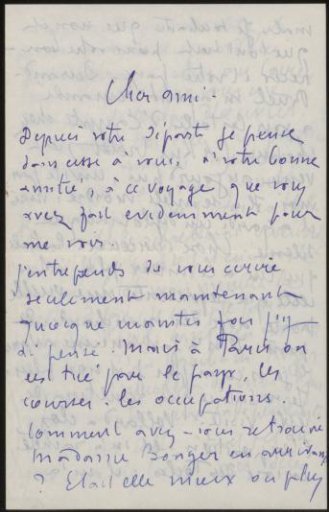 Cher ami -
Depuis votre départ je pense
sans cesse à vous, à votre bonne
amitié, à ce voyage que vous
avez fait évidemment pour
me voir
j'entreprends de vous écrire
seulement maintenant
quoique maintes fois j'y
ai pensé. Mais à Paris on
est tué par le pays, les
courses - les occupations.
Comment avez-vous retrouvé
Madame Bonger en arrivant
? Etait elle mieux ou plus